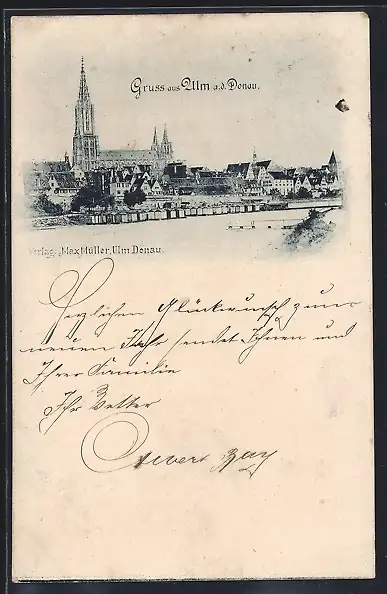 Gruss aus Ulm a.d. Donau.
Verlag: Max Müller, Ulm Donau.
Herzlichen Glückwunsch zum
neuen Jahr sendet Ihnen und
Ihrer Familie
Ihr Vetter